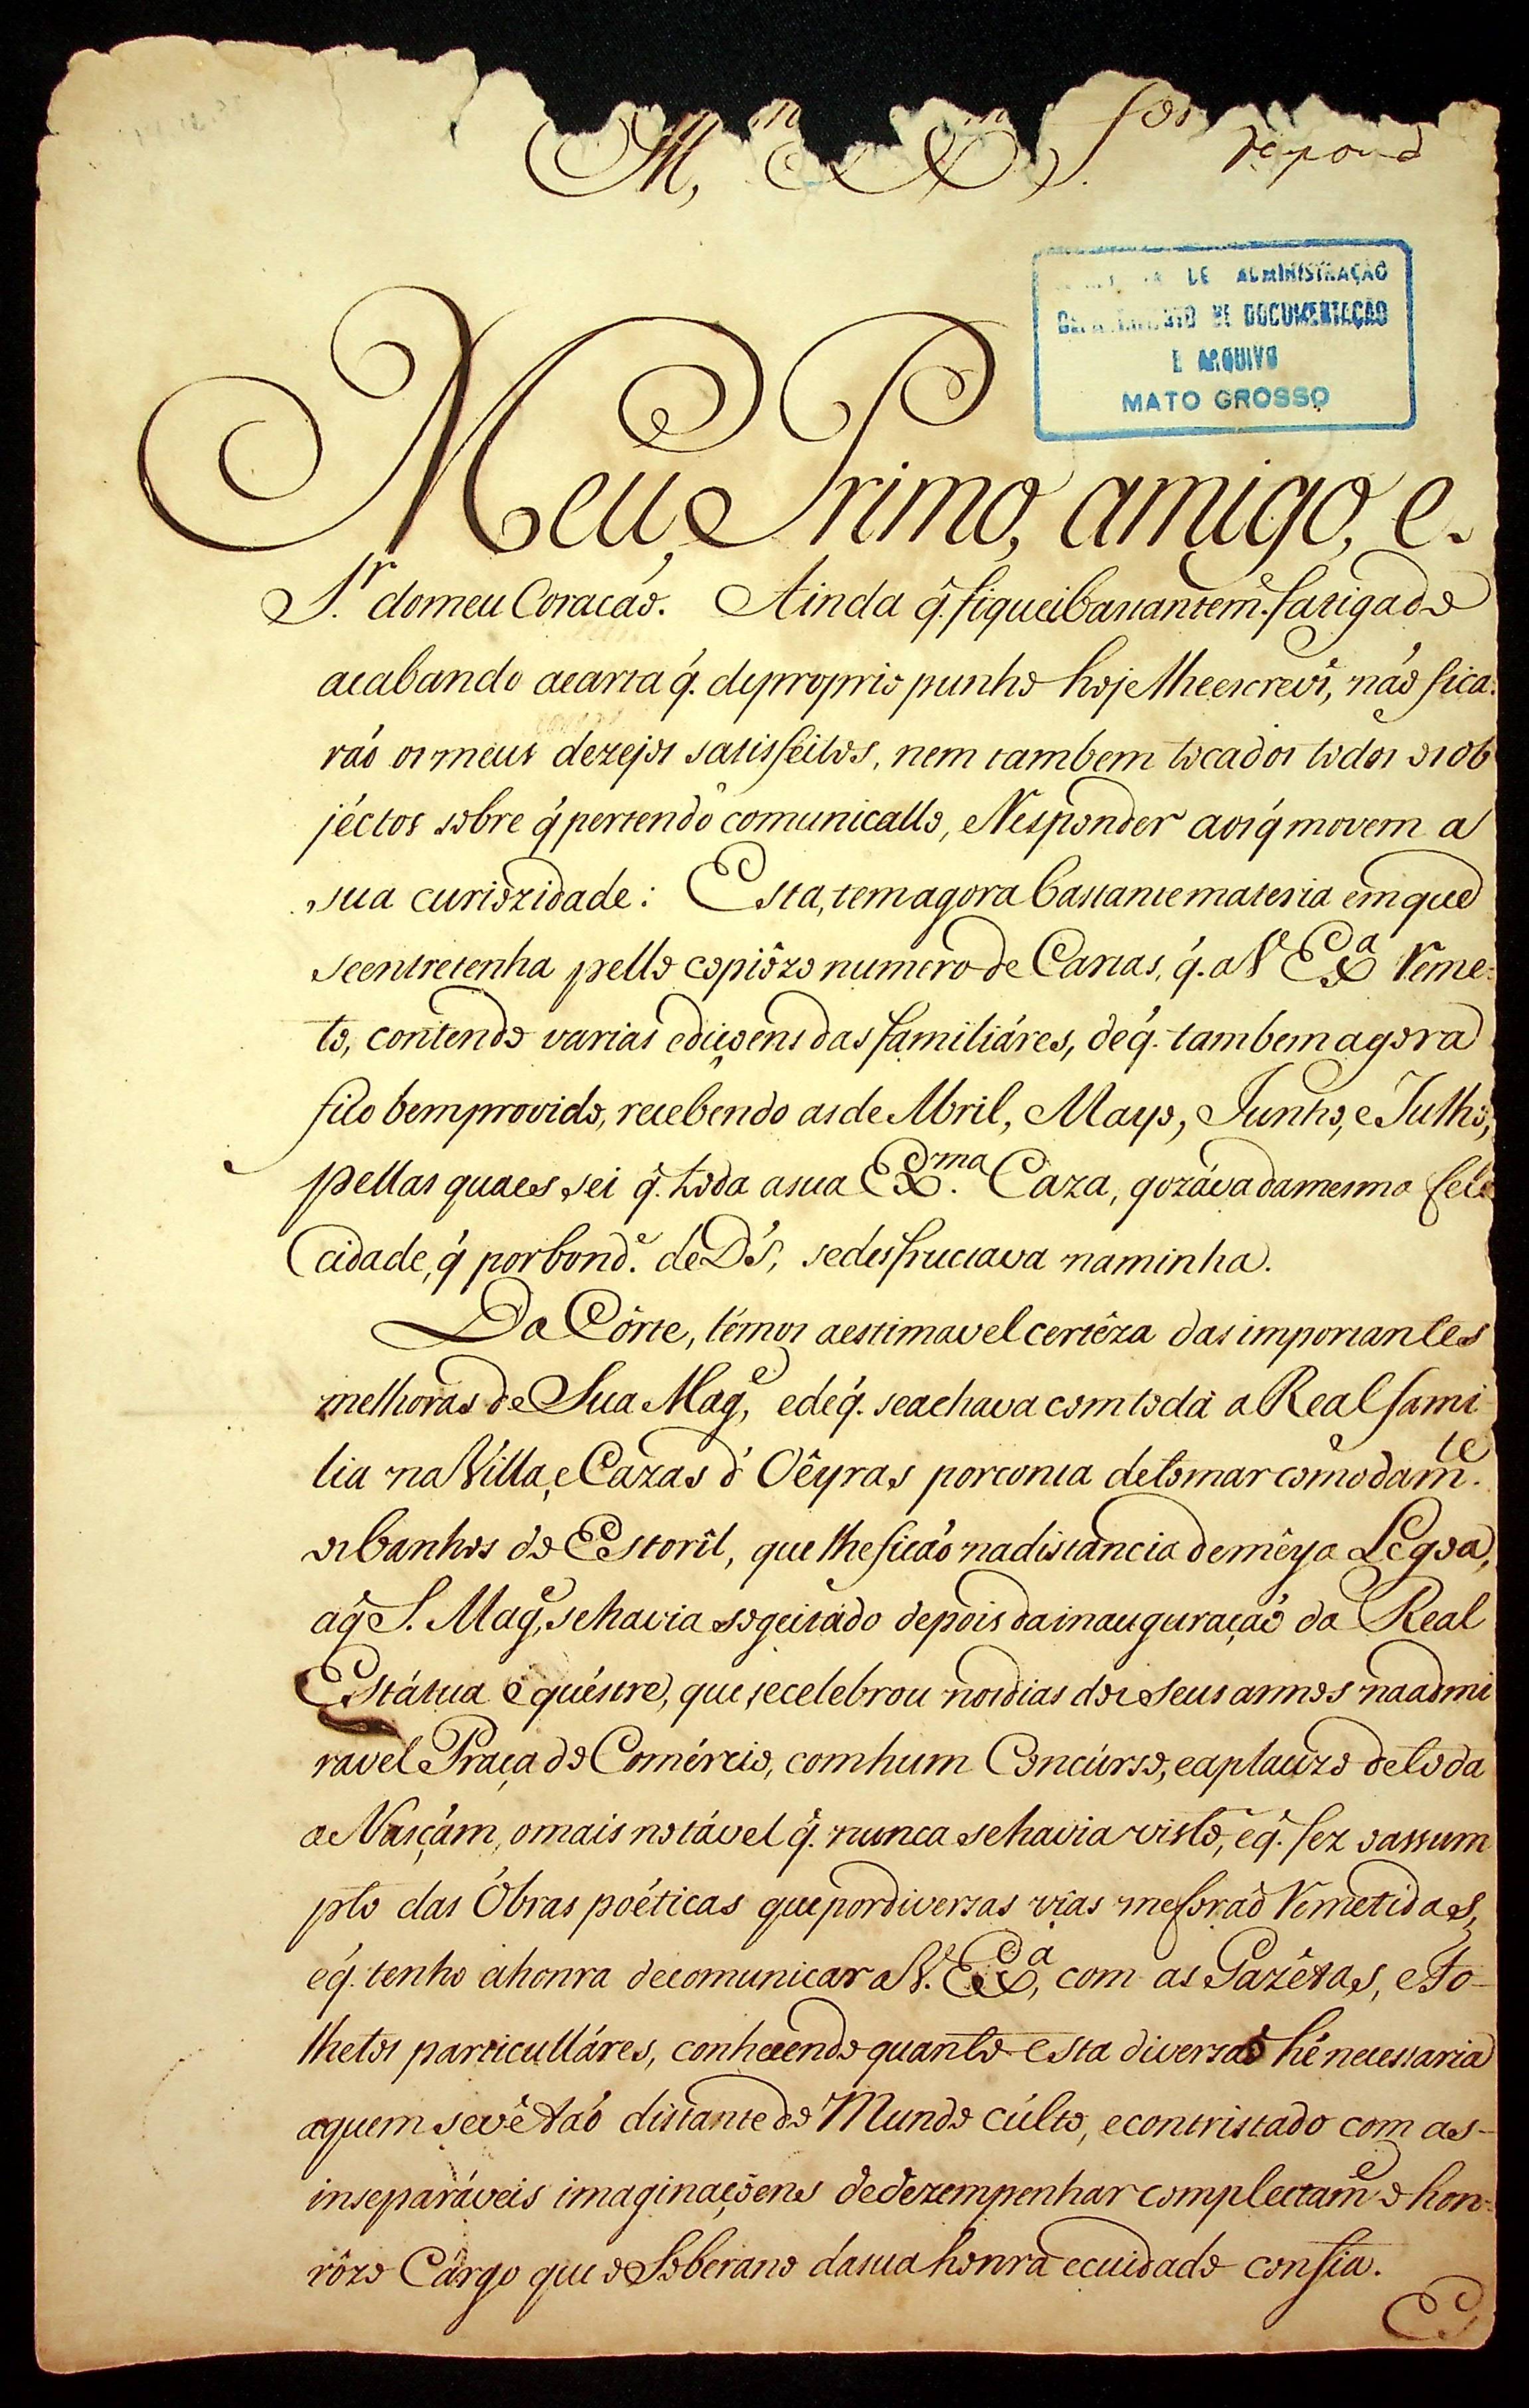 DE ADMINISTRAÇÃO
DE DOCUMENTAÇÃO
E ARQUIVO
MATO GROSSO
Meu Primo, amigo, e
S.r domeu Coracáo. Ainda q̃. fiquei bastantem.e fatigado
acabando acarta q́. deproprio punho hoje lheescrevî, náo fica:
ráo os meus dezejos satisfeitos, nem tambem tocados todos os ob
jéctos sobre q́ pertendo comunicallo, eResponder aos q́ movem a
sua curiozidade: Esta, temagora bastantemateria emque
seentretenha pello copiôzo numero de Cartas, q́. a V Ex.a Reme:
to, contendo varias ediçoens das familiáres, deq́. tambem agora
fico bemprovido, recebendo asde Abril, Mayo, Junho, e Julho,
pellas quaes sei q̃. toda asua Ex.ma Caza, gozáva damesma feli
cidade, q́ porbond.e deD́s, sedesfructava naminha.
Da Côrte, témos aestimavel certêza das importantes
melhoras de Sua Mag.e, edeq́. seachava comtoda a Real fami
lia na Villa, e Cazas d' Oêyras porconta detomar comodam.te
osbanhos do Estoril, que lheficáo nadistancia demêya Legoa,
aq̃ S. Mag.e, sehavia sogeitádo depois dainauguraçaõ da Real
Estátua équéstre, que secelebrou nosdias dos Seus annos naadmi
ravel Praça do Comércio, comhum Concúrso, eaplauzo detoda
a Nasçám, omais notável q̃. nunca sehavia visto, eq̃. fez oassum
pto das Óbras poéticas quepordiversas vîas meforaõ Remetidas,
eq́. tenho ahonra decomunicar a V. Ex.a, com as Gazêtas, e Fo-
lhetos particulláres, conhecendo quanto esta diversaõ hé necessaria
aquem sevê táo distante do Mundo cúlto, econtristado com as-
inseparáveis imaginaçoens dedezempenhar complectam.e o hon:
rôzo Cárgo que o Soberano dasua honra ecuidado confia.